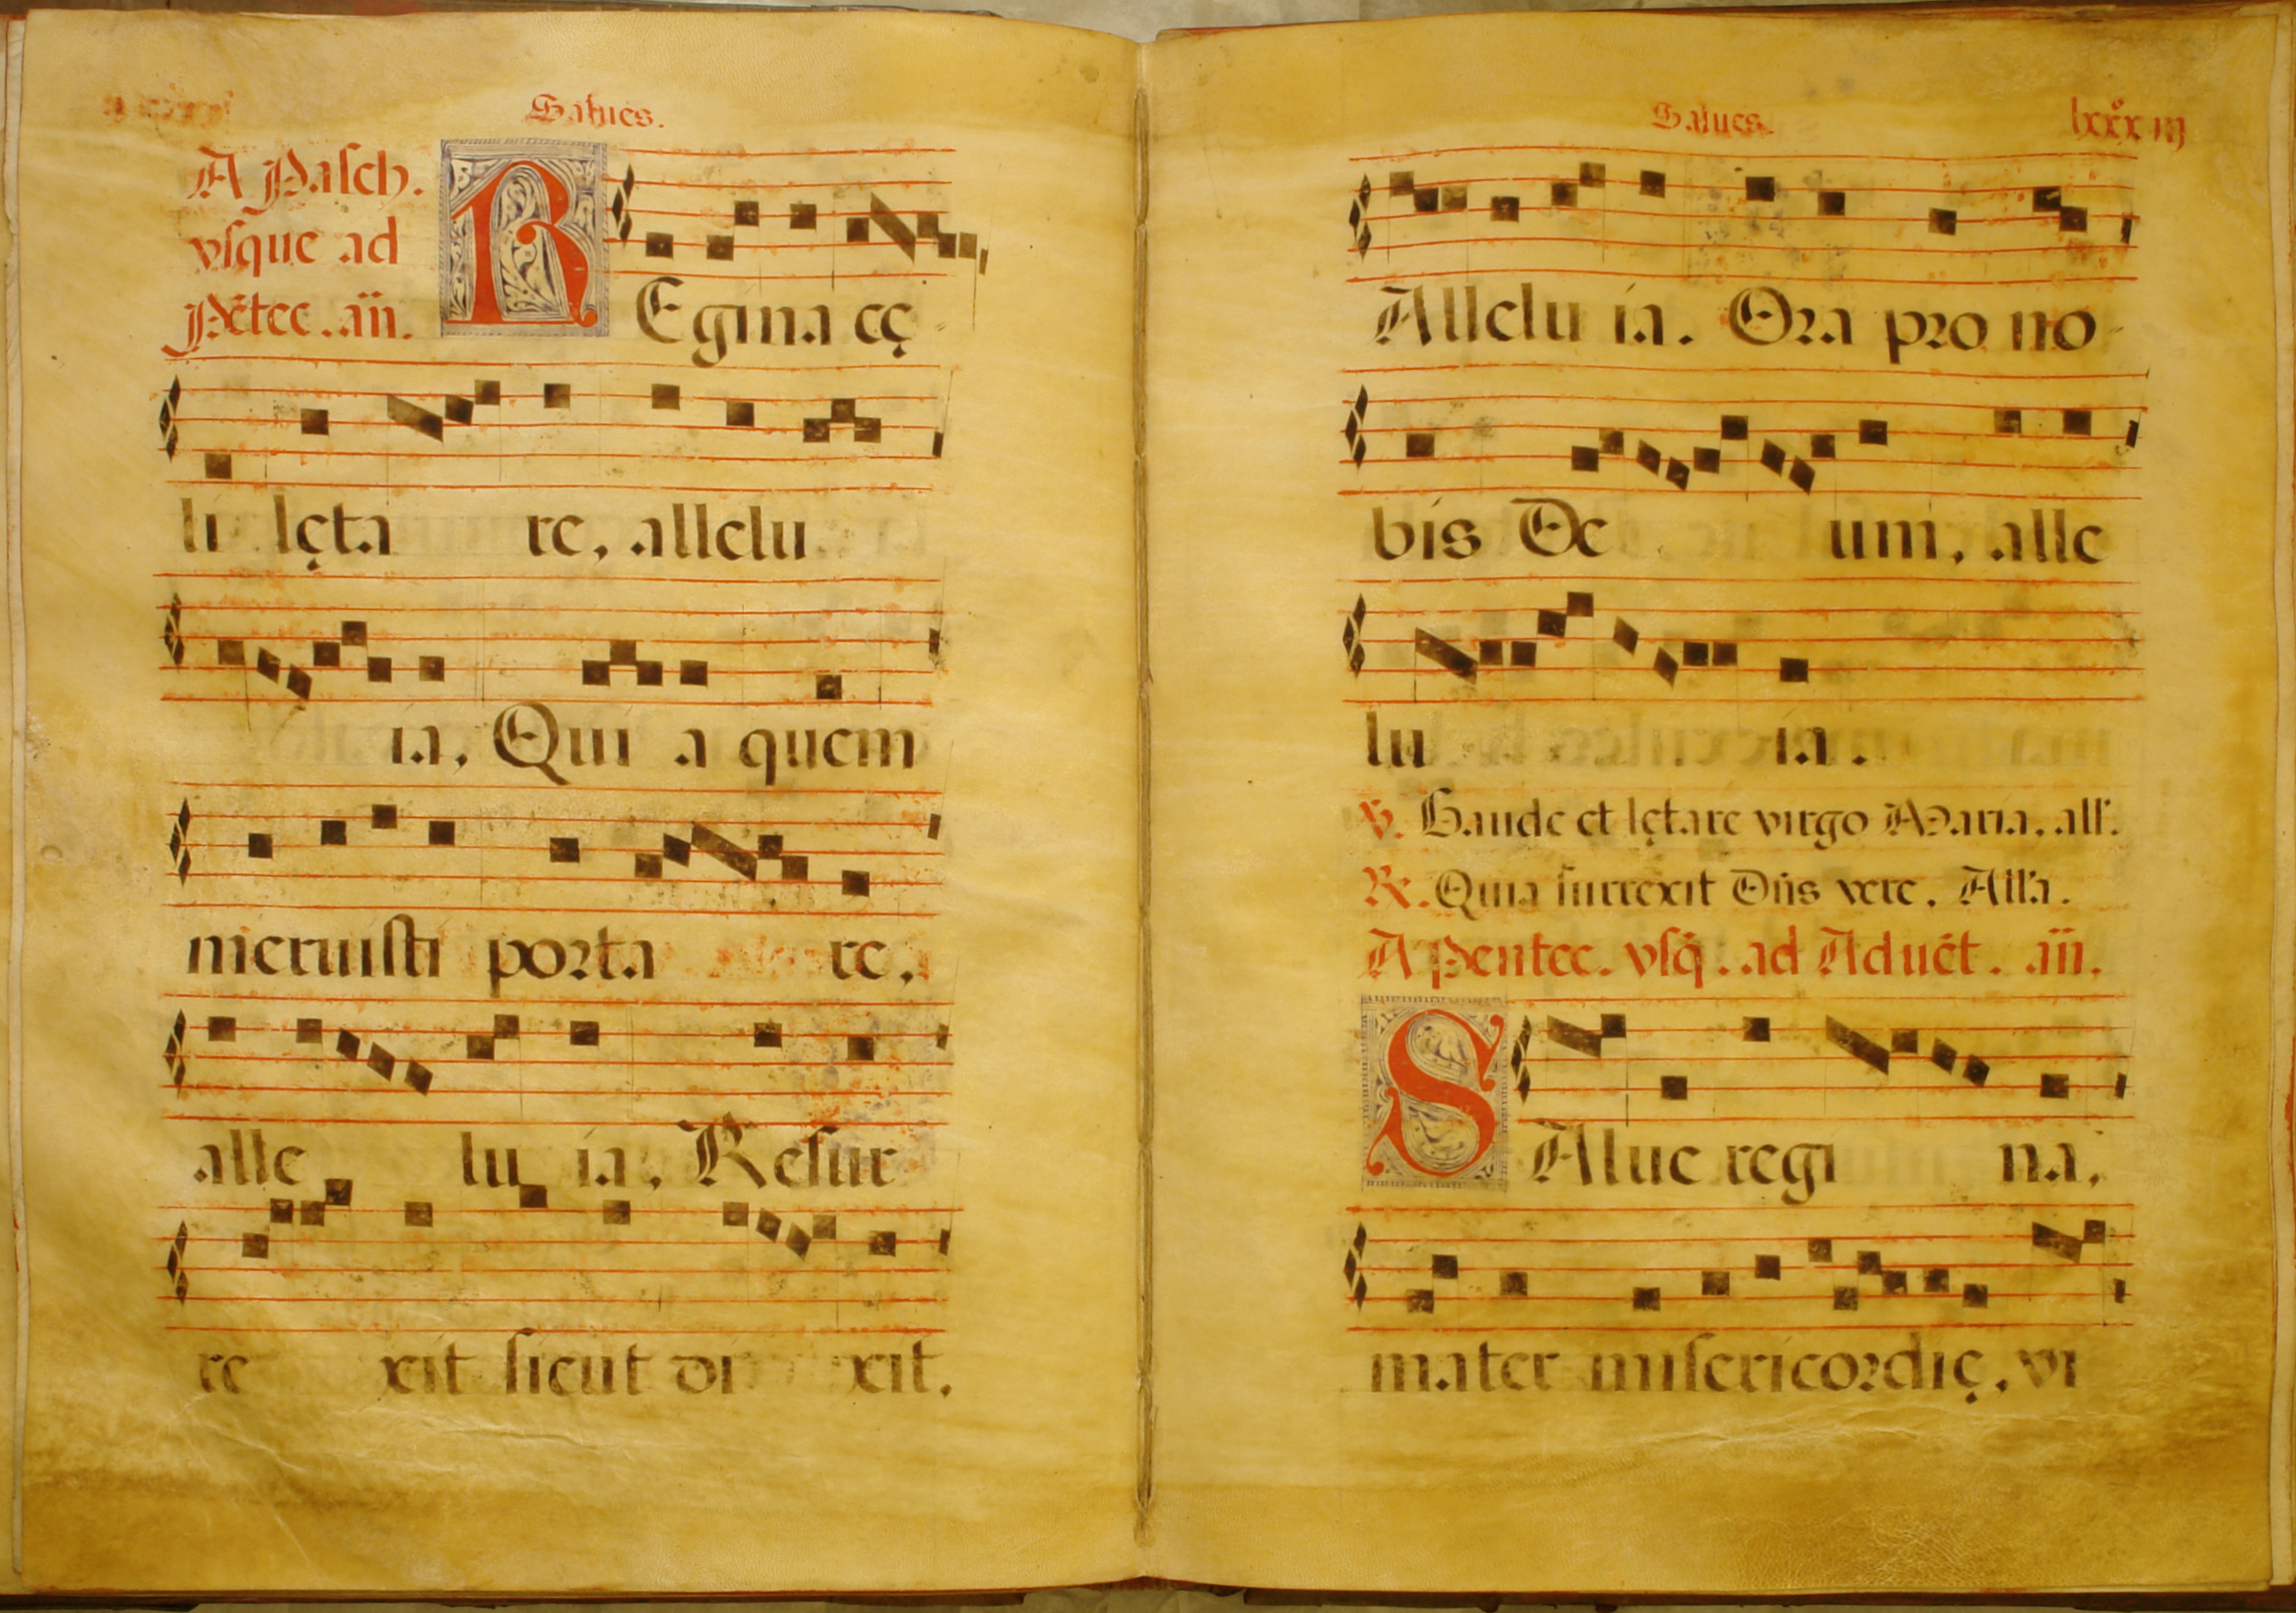 Salues.
A Pasch.
vsque ad
Pētec. añ.
REgina cę
li lęta re, allelu
ia, Qui a quem
meruisti porta re,
alle lu ia, Resur
re xit sicut di xit,
Salues.
lxxxiij
Allelu ia. Ora pro no
bis De um, alle
lu ia.
℣. Gaude et lętare virgo Maria, all'.
℟. Quia surrexit Dñs vere. All'a.
A Pentec. vsq̄. ad Aduēt. añ.
SAlue regi na,
mater misericordię, vi